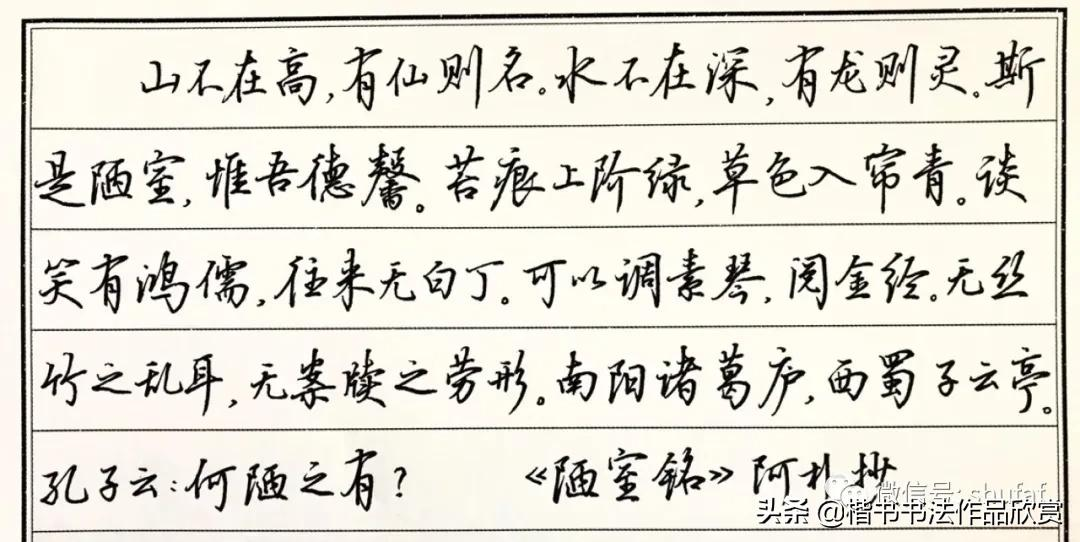 山不在高,有仙则名。水不在深,有龙则灵。斯
是陋室,惟吾德馨。苔痕上阶绿,草色入帘青。谈
笑有鸿儒,往来无白丁。可以调素琴,阅金经。无丝
竹之乱耳,无案牍之劳形。南阳诸葛庐,西蜀子云亭。
孔子云:何陋之有? 《陋室铭》阿朴抄
微信号: shufaf
头条 @楷书书法作品欣赏